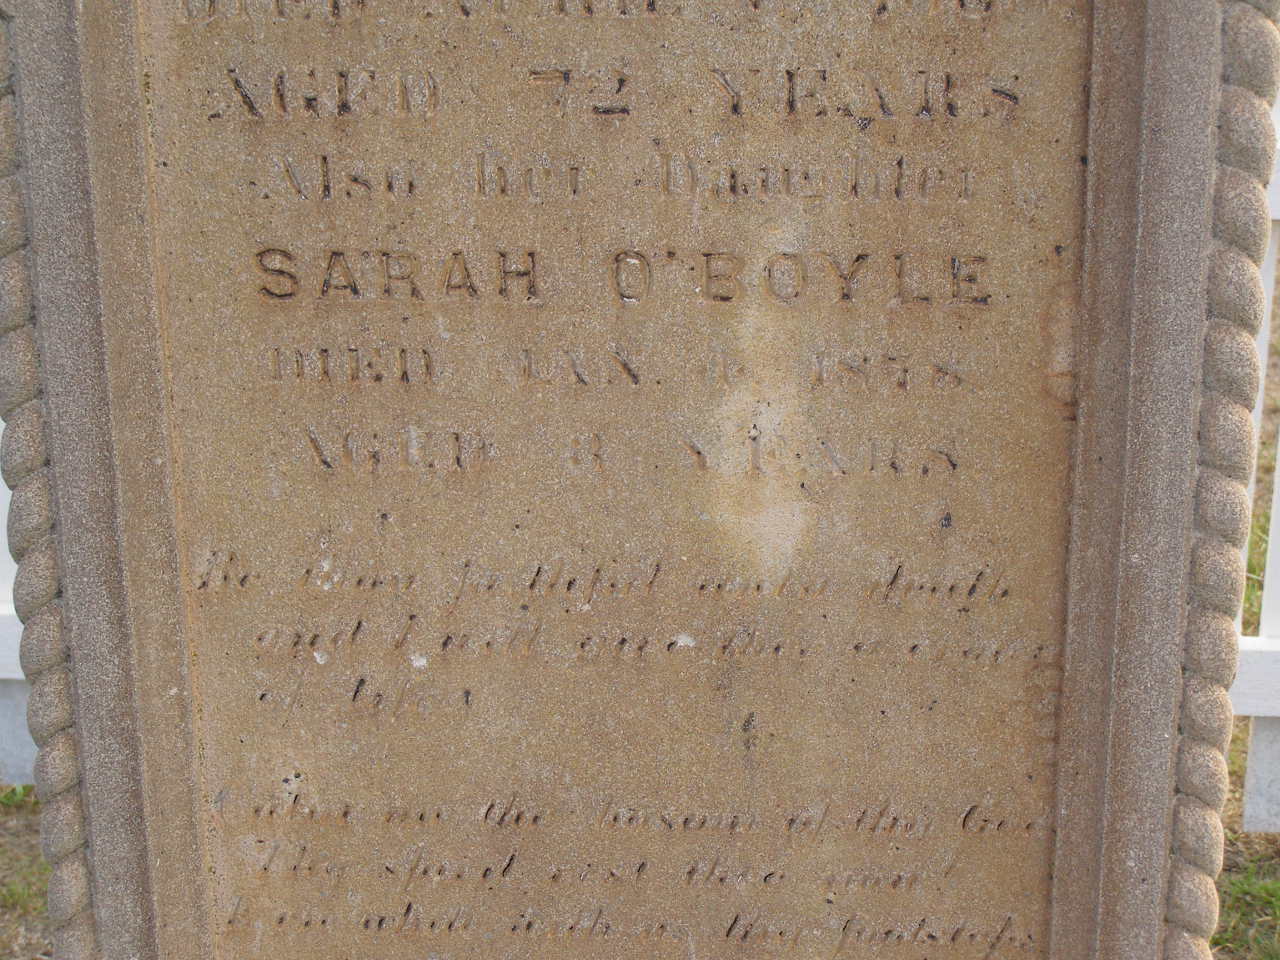 DIED APRIL
AGED 72 YEARS
Also her Daughter
SARAH O'BOYLE
DIED JAN. 1 1878
AGED 8 YEARS
Be thou faithful unto death
and I will give thee a crown
of life
me the bosom of thy God
Thy spirit rest thee now!
E'en while with us thy footsteps